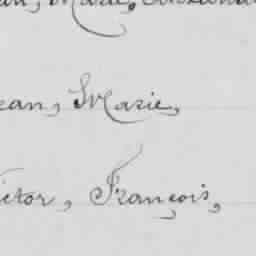 ean, Marie,
ictor, François,